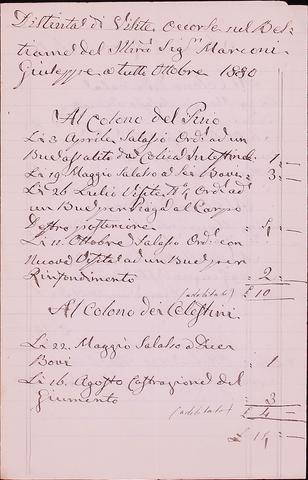 Distinta di Visite occorse nel Bes=
tiame del Illmo Sigr Marconi
Giuseppe a tutto Ottobre 1880
Al Colono del Pino
Li 3 Aprile Salasso Ordo ad un
Bue assalito da Colica Intestinale 1
Li 19 Maggio Salasso a Sei Bovi = 3 =
Li 26 Luglio Visite No 4 Ord. ad
un Bue per Piaga al Carpo
Destro posteriore = 4 =
Li 11 Ottobre Salasso Ordo con
Nuove Visite ad un Bue per
Rinfondimento = 2 =
(addebitato) £ 10
Al Colono dei Celestini
Li 22 Maggio Salasso a Due
Bovi = 1
Li 16 Agosto Castrazione del
Giumento = 3
(addebitato) £ 4
£ 14